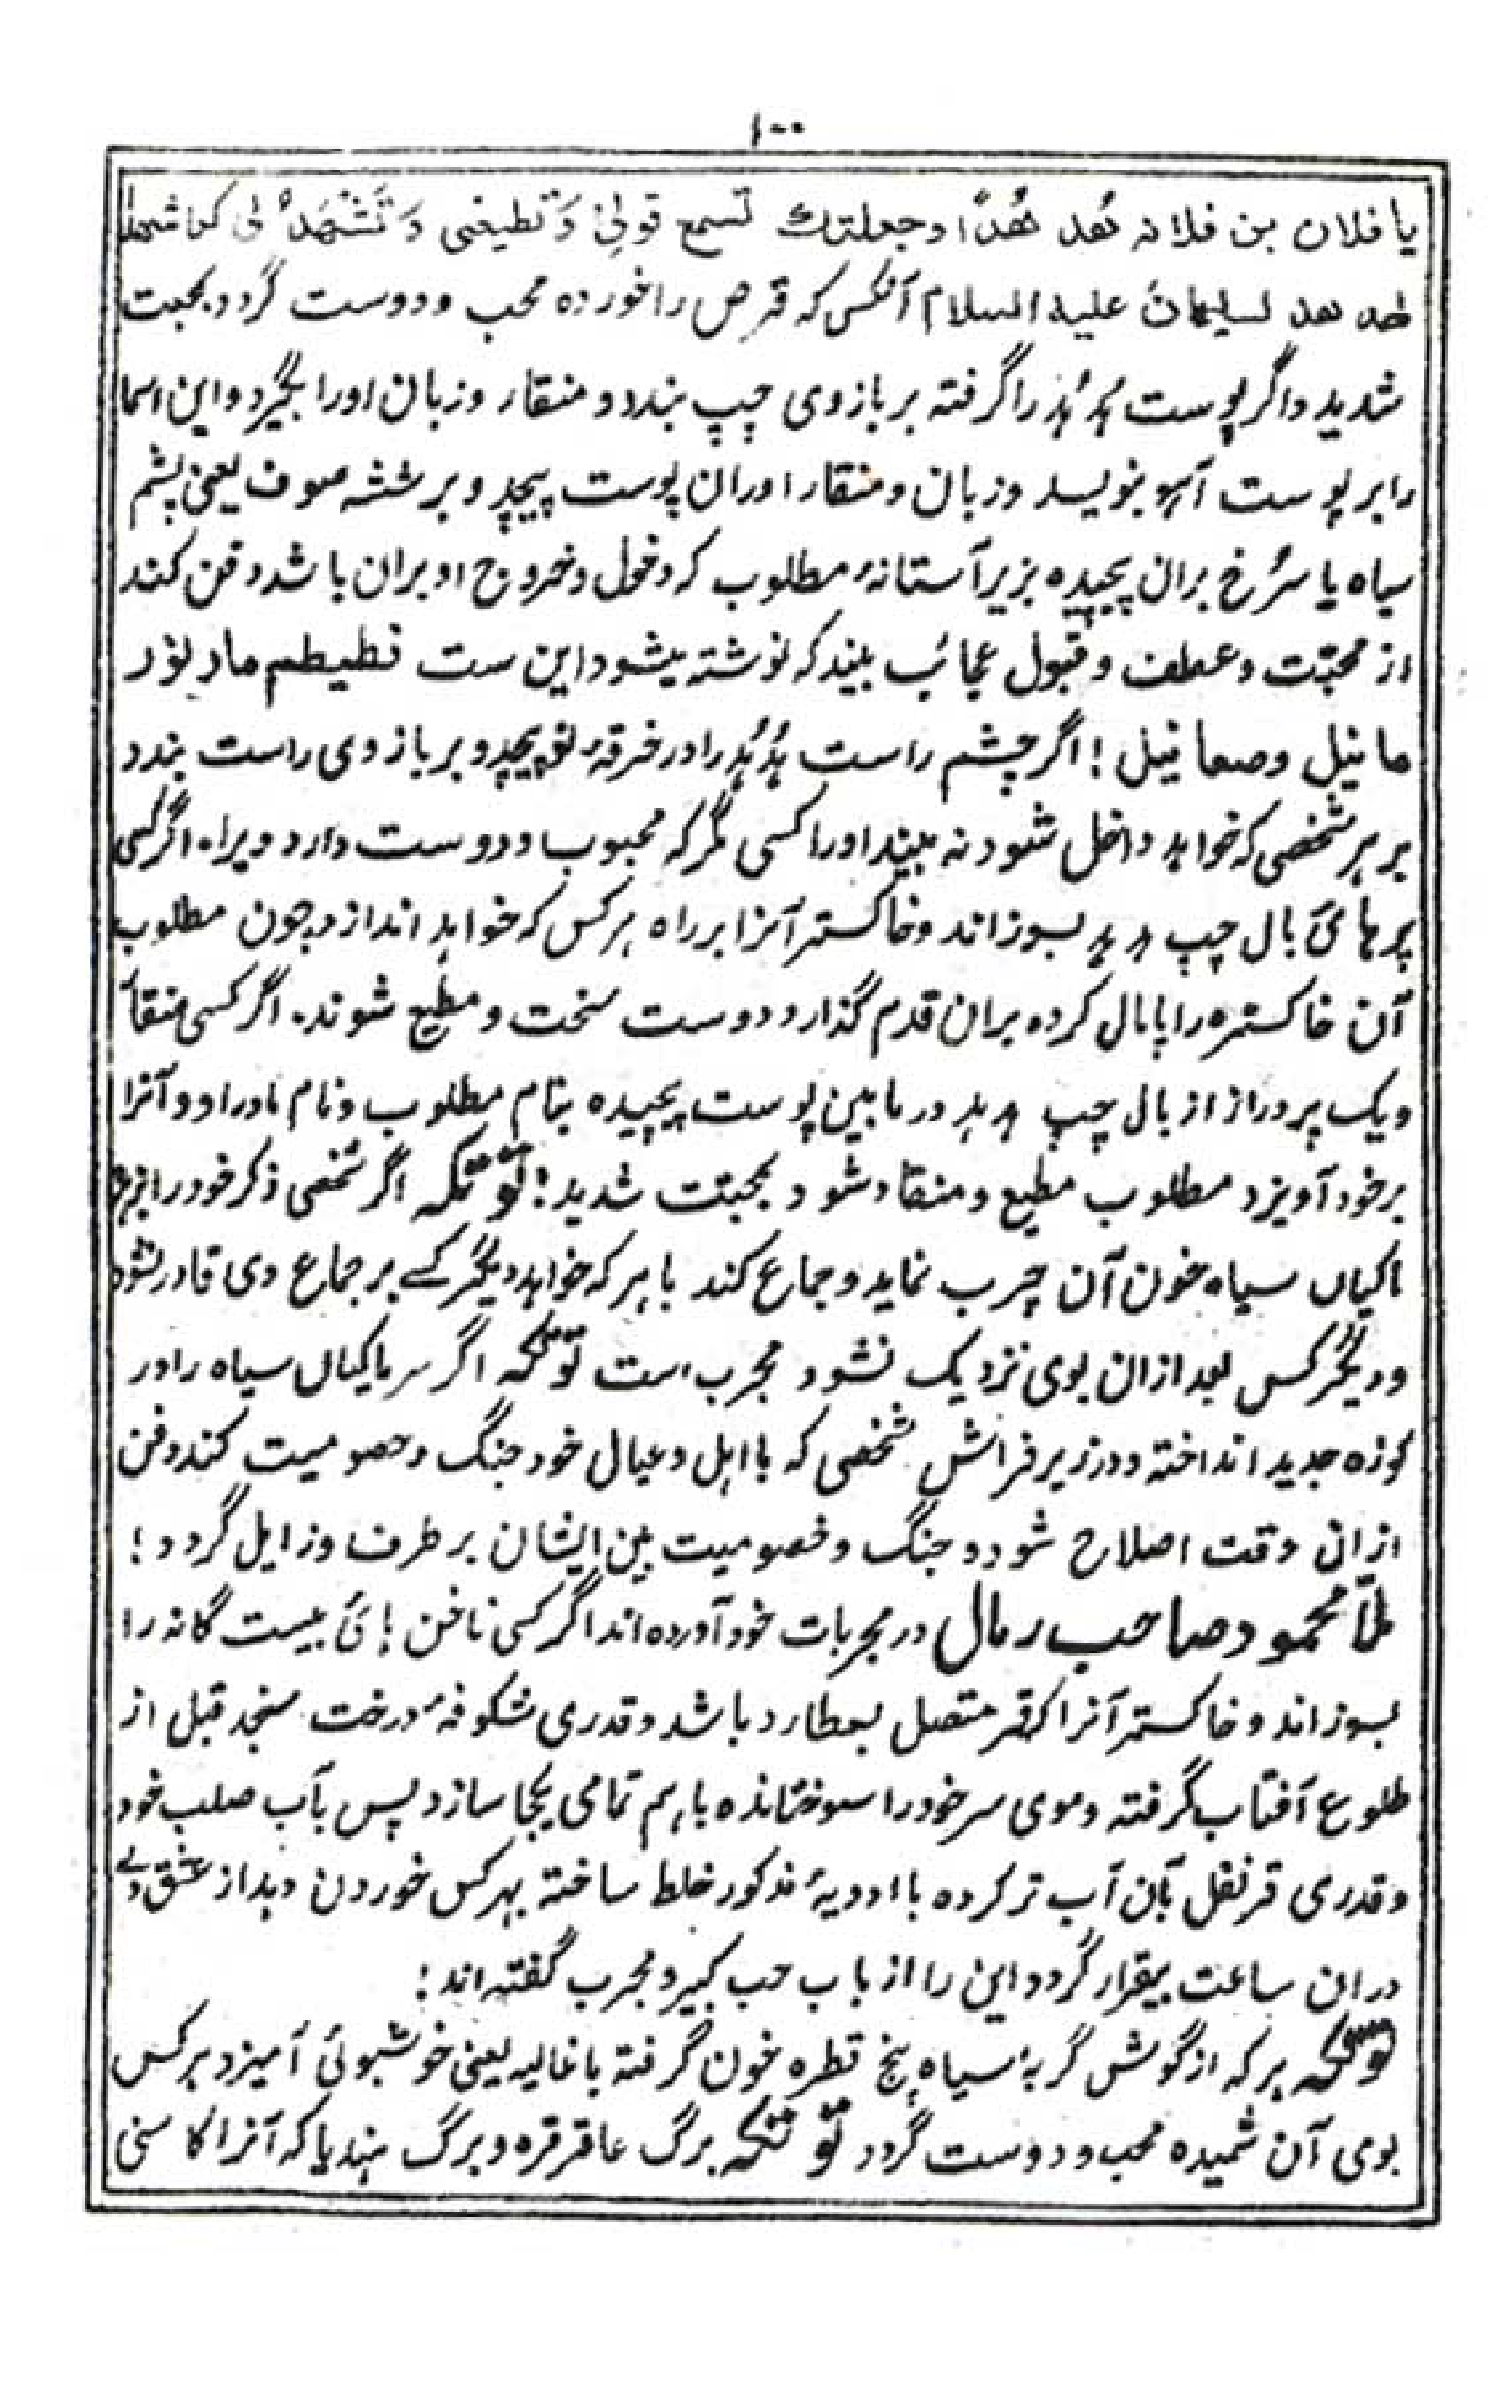 ۱۰۰
یا فلان بن فلانه هُد هُدًا وجعلتك تسمع قولِی وَتطیعنی وَتَشْهَدْ لی کما شهد
هد هد لسلیمانَ علیه السلام آنکس که قرص را خورده محب ودوست گردد بمحبت
شدید واگر پوست هُدهُد را گرفته بر بازوی چپ بندد و منقار وزبان اورا بگیرد واین اسما
را بر پوست آہو بنویسد وزبان ومنقار اوران پوست پیچد وبر ششه صوف یعنی پشم
سیاه یا سُرخ بران پیچیده بزیر آستانهٔ مطلوب که دخول وخروج او بران باشد دفن کند
از محبّت وعطف وقبول عجائب بیند که نوشته میشود این ست نطیطم مارنور
مائیل وصعائیل ! اگر چشم راست هُدهُد را در خرقهٔ نو پیچد وبر بازوی راست بندد
بر ہر شخصی که خواہد داخل شود نه بیند اورا کسی مگر که محبوب ودوست دارد ویرا۔ اگر کسی
پرہائے بال چپ ہدہد بسوزاند وخاکستر آنرا بر راه ہرکس که خواہد اندازد چون مطلوب
آن خاکستره را پامال کرده بران قدم گذارد دوست سخت ومطیع شوند۔ اگر کسی منقار
ویک پر دراز از بال چپ ہدہد در مابین پوست پیچیده بنام مطلوب ونام مادر او وآنرا
برخود آویزد مطلوب مطیع ومنقاد شود بمحبّت شدید ! توتکه اگر شخصی ذکر خود را
ماکیاں سیاه خون آن چرب نماید وجماع کند باہر که خواہد دیگر کسے بر جماع وی قادر نشود
ودیگر کس بعد ازان بوی نزدیک نشود مجرب است توتکه اگر سر ماکیاں سیاه را در
کوزه جدید انداخته ودر زیر فراش شخصی که با اہل وعیال خود جنگ وخصومیت کند دفن
ازانی وقت اصلاح شود وجنگ وخصومیت بین ایشان برطرف وزایل گردد !
ملّا محمود صاحب رمال در مجربات خود آورده اند اگر کسی ناخن ہائے بیست گانه را
بسوزاند وخاکستر آنرا که قمر متصل بعطارد باشد وقدری شگوفهٔ درخت سنجد قبل از
طلوع آفتاب گرفته وموی سر خود را سوختانده باہم تمامی یکجا سازد پس بآب صلب خود
وقدری قرنفل بآن آب تر کرده با ادویهٔ مذکور خلط ساخته بہرکس خوردن دہد از عشق وے
دران ساعت بیقرار گردد این را از باب حب کبیر ومجرب گفته اند :
توتکه ہرکه از گوش گربهٔ سیاه پنج قطره خون گرفته با غالیه یعنی خوشبوئی آمیزد ہرکس
بوی آن شمیده محب ودوست گردد توتکه برگ عاقرقره وبرگ ہندیا که آنرا کاسنی